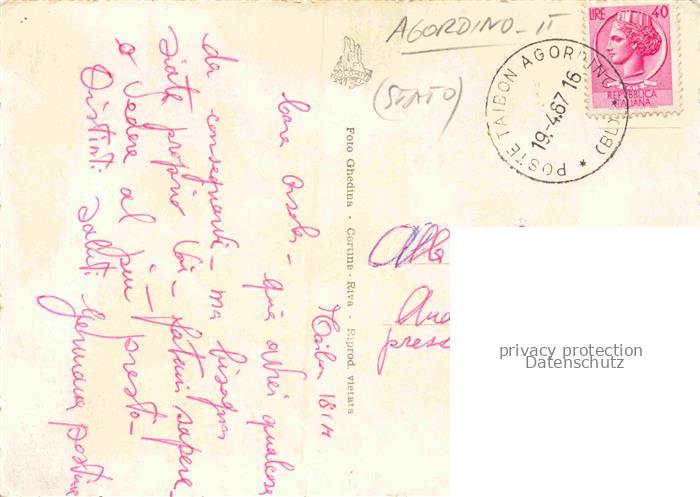 AGORDINO - II
(STATO)
LIRE 40
POSTE
REPUBBLICA
ITALIANA
POSTE TAIBON AGORDINO * (BL
19.4.67 16
Foto Ghedina - Cortina - Riva - Riprod. vietata
18/4
Cara - qua avrei qualcosa
da - ma bisogna
siate proprio Voi - fatevi sapere
o vedere al più presto -
Distinti saluti Germana
presso
privacy protection
Datenschutz